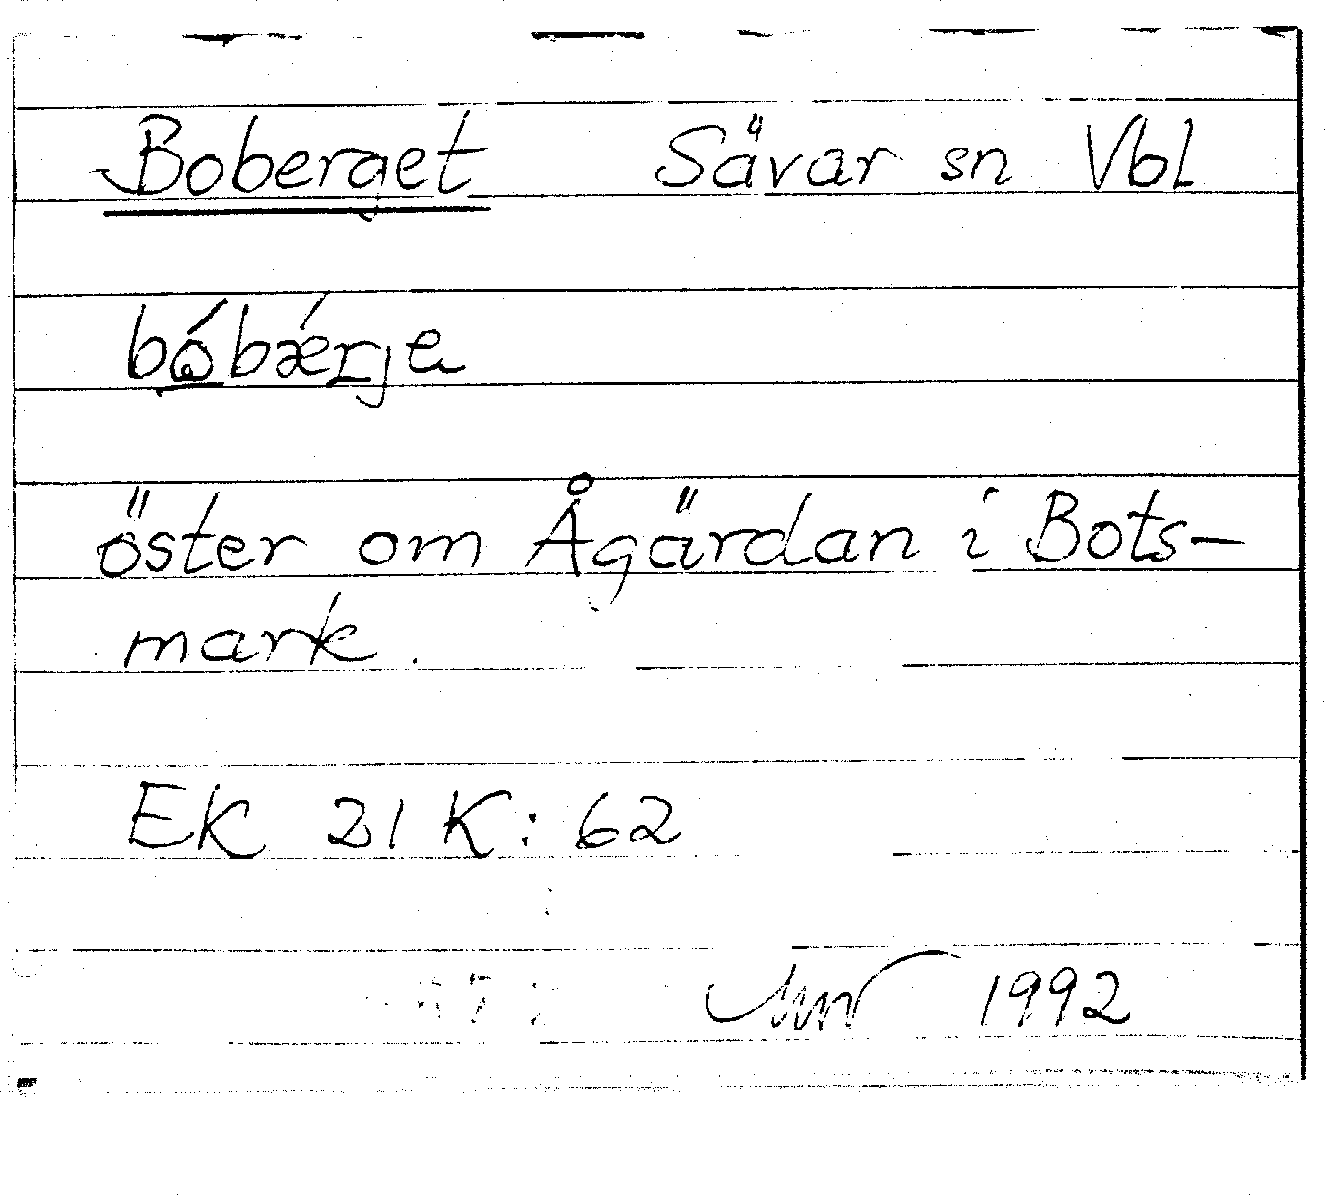 Boberget Sävar sn Vbl
bǿbǽrje
öster om Ågärdan i Bots-
mark.
EK 21 K: 62
1992